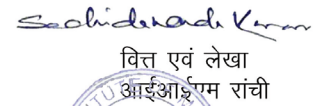 Sachidananda Kumar
वित्त एवं लेखा
आईआईएम रांची